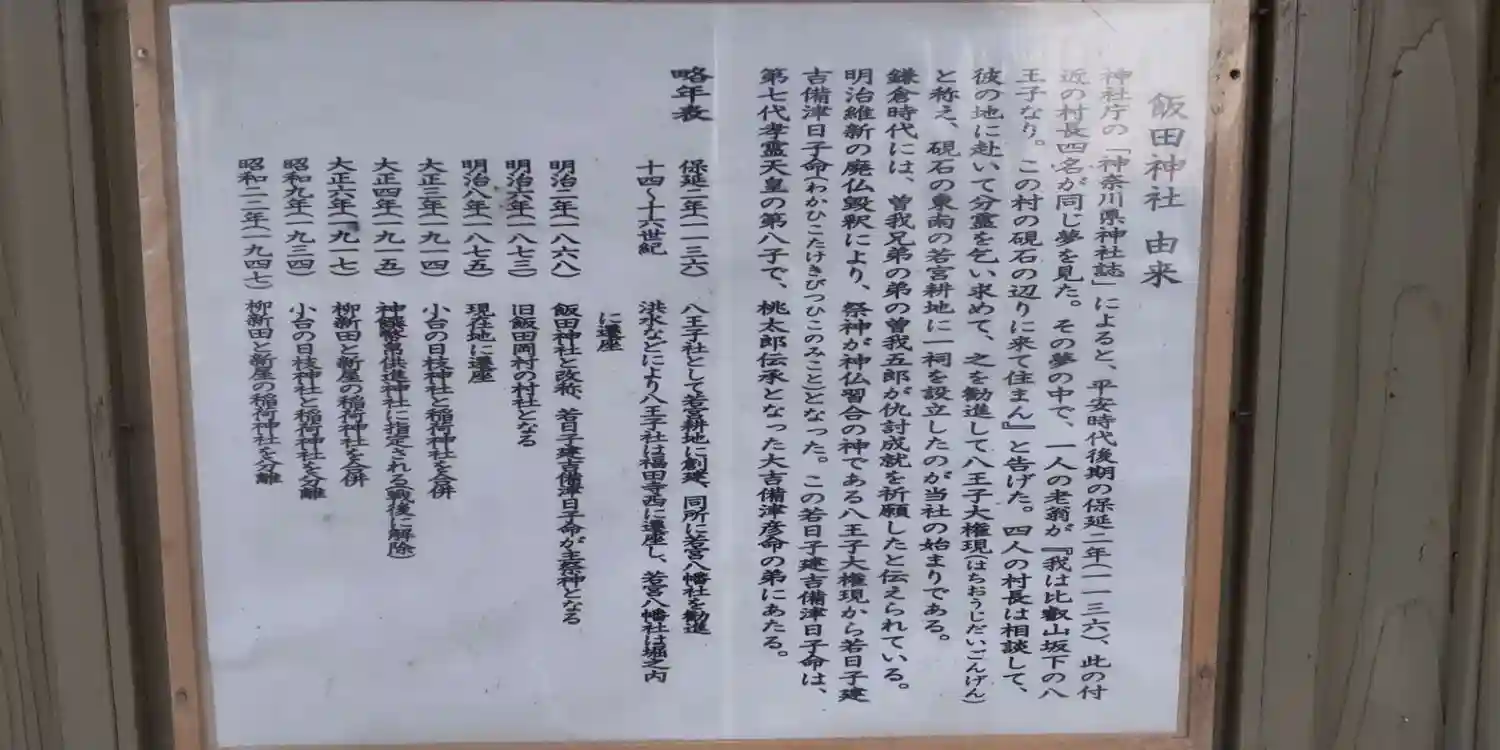 飯田神社 由来
神社庁の「神奈川県神社誌」によると、平安時代後期の保延二年(一一三六)、此の付
近の村長四名が同じ夢を見た。その夢の中で、一人の老翁が『我は比叡山坂下の八
王子なり。この村の硯石の辺りに来て住まん』と告げた。四人の村長は相談して、
彼の地に赴いて分霊を乞い求めて、之を勧進して八王子大権現(はちおうじだいごんげん)
と称え、硯石の東南の若宮耕地に一祠を設立したのが当社の始まりである。
鎌倉時代には、曽我兄弟の弟の曽我五郎が仇討成就を祈願したと伝えられている。
明治維新の廃仏毀釈により、祭神が神仏習合の神である八王子大権現から若日子建
吉備津日子命(わかひこたけきびつひこのみこととなった。この若日子建吉備津日子命は、
第七代孝霊天皇の第八子で、桃太郎伝承となった大吉備津彦命の弟にあたる。
略年表
保延二年(一一三六) 八王子社として若宮耕地に創建、同所に若宮八幡社を勧進
十四~十六世紀 洪水などにより八王子社は福田寺西に遷座し、若宮八幡社は堀之内
に遷座
明治二年(一八六八) 飯田神社と改称、若日子建吉備津日子命が主祭神となる
明治六年(一八七三) 旧飯田岡村の村社となる
明治八年(一八七五) 現在地に遷座
大正三年(一九一四) 小台の日枝神社と稲荷神社を合併
大正四年(一九一五) 神饌幣帛供進神社に指定される(戦後に解除)
大正六年(一九一七) 柳新田と新屋の稲荷神社を合併
昭和九年(一九三四) 小台の日枝神社と稲荷神社を分離
昭和二二年(一九四七) 柳新田と新屋の稲荷神社を分離